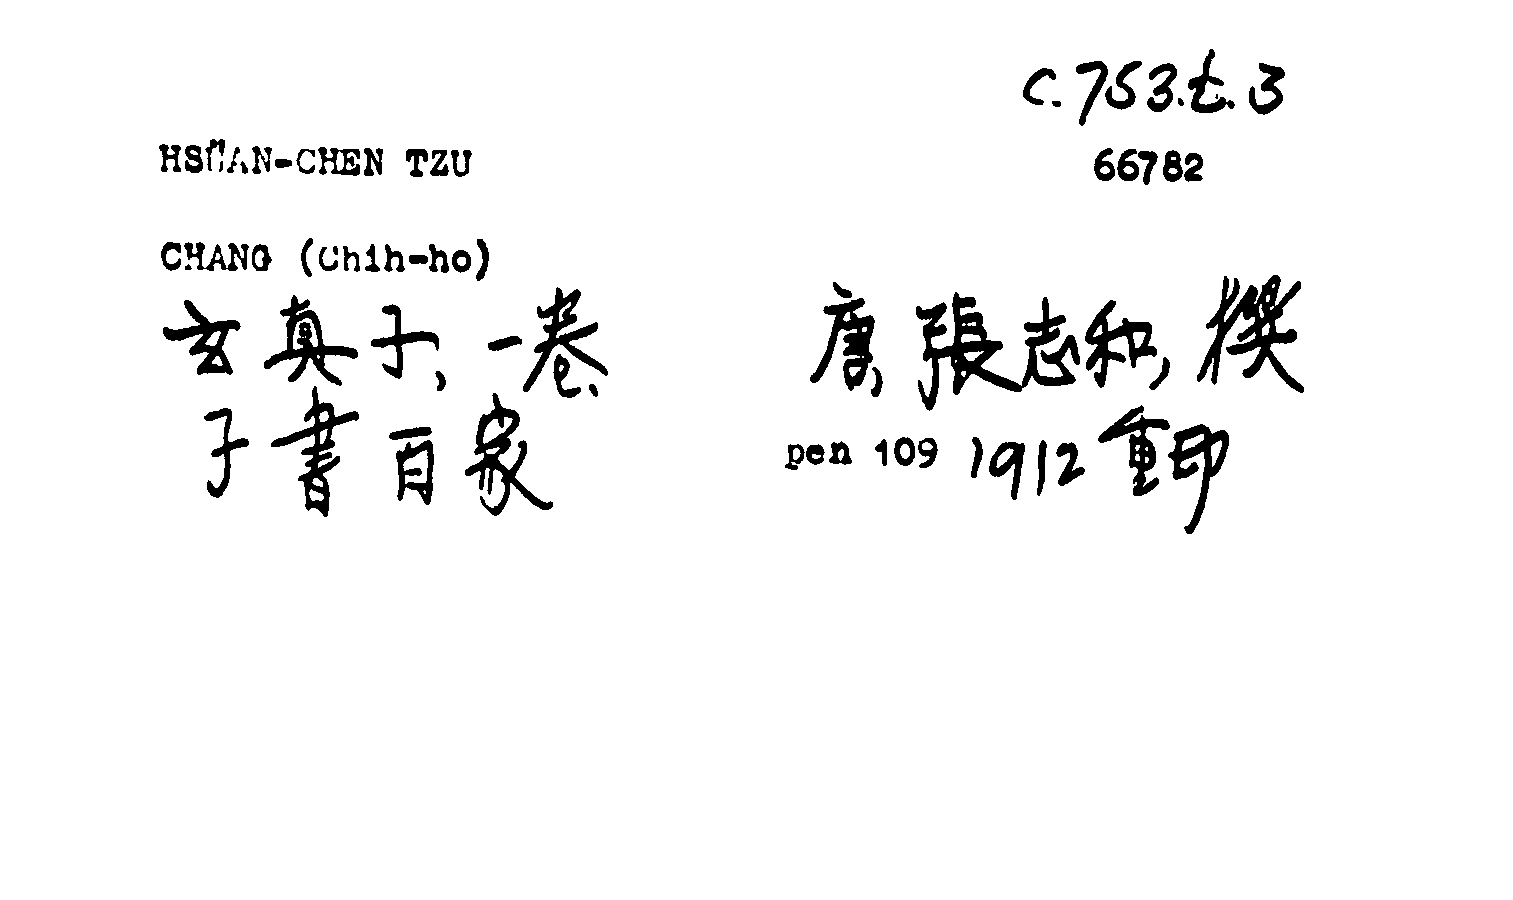 c.753.t.3
HSÜAN-CHEN TZU 66782
CHANG (Chih-ho)
玄真子、一卷、 唐、張志和, 撰
子書百家 pen 109 1912 重印